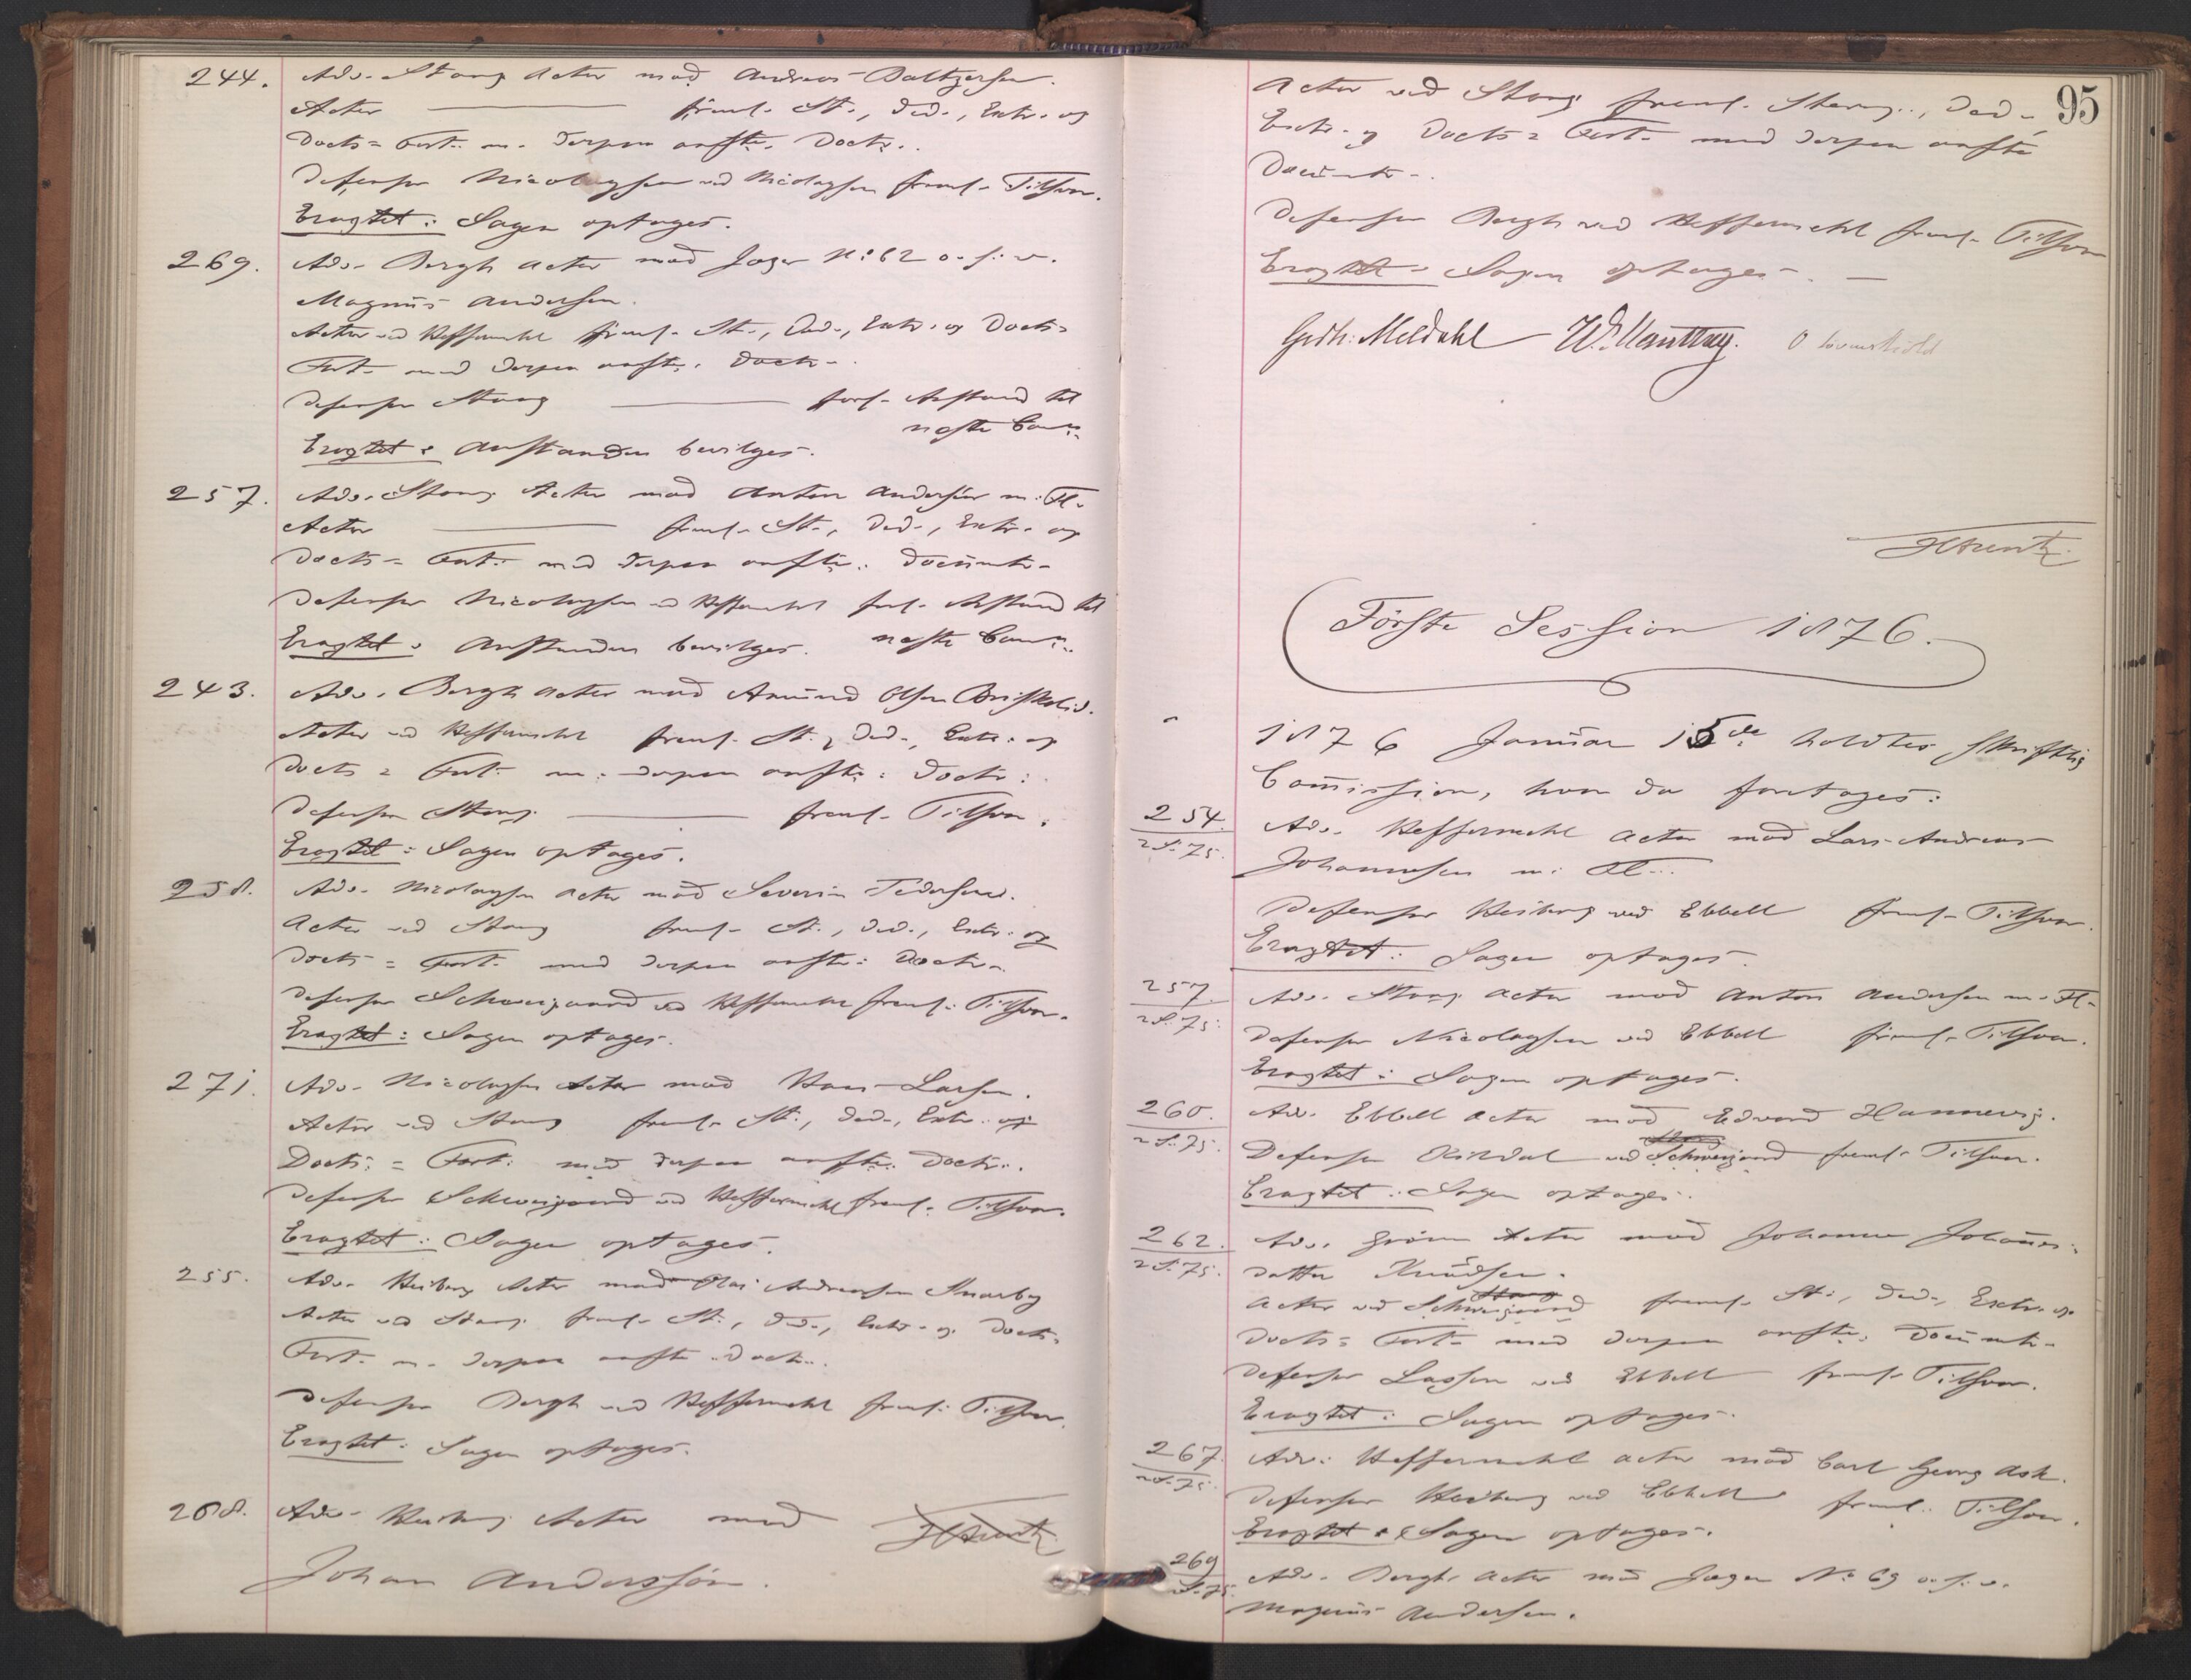 244. Adv. Stang Actor mod Andreas Baltzersen.
Actor ——— freml. St., Ded., Extr. og
Docts = Fort. m. derpaa anfte. Doctr..
Defensor Nicolaysen ved Nicolaysen freml. Tilsvar.
Eragtet: Sagen optages.
269. Adv. Bergh Actor mod Jæger No 62 o. s. v.
Magnus Andersen.
Actor ved Heffermehl freml. St., Ded., Extr. og Docts
Fort. med derpaa anfte. Doctr.
Defensor Stang ——— forl. Anstand til
næste Comn.
Eragtet: Anstanden bevilges.
257. Adv. Stang Actor mod Anton Andersen m. Fl.
Actor ——— freml. St., Ded., Extr. og
Docts = Fort. med derpaa anfte. Documtr.
Defensor Nicolaysen ved Heffermehl forl. Anstand til
Eragtet: Anstanden bevilges. næste Comn..
243. Adv. Bergh Actor mod Amund Olsen
Actor ved Heffermehl freml. St., Ded., Extr. og
Docts = Fort. m. derpaa anfte: Doctr:
Defensor Stang ——— freml. Tilsvar.
Eragtet: Sagen optages.
258. Adv. Nicolaysen Actor mod Severin Pedersen.
Actor ved Stang freml. St., Ded., Extr. og
Docts = Fort. med derpaa anfte: Doctr.
Defensor Schweigaard ved Heffermehl freml. Tilsvar.
Eragtet: Sagen optages.
271. Adv. Nicolaysen Actor mod Hans Larsen.
Actor ved Stang freml. St., Ded., Extr. og
Docts. = Fort. med derpaa anfte. Doctr..
Defensor Schweigaard ved Heffermehl freml. Tilsvar.
Eragtet: Sagen optages.
255. Adv. Heiberg Actor mod Olai Andreasen Snarby
Actor ved Stang freml. St., Ded., Extr. og Docts.
Fort. m. derpaa anfte. Doctr..
Defensor Bergh ved Heffermehl freml. Tilsvar.
Eragtet: Sagen optages.
268. Adv. Heiberg Actor mod
Johan Anderssøn.
95
Actor ved Stang freml. Stevng., Ded.,
Extr. og Docts = Fort. med derpaa anfte
Documtr..
Defensor Bergh ved Heffermehl freml. Tilsvar
Eragtet: Sagen optages. —
Gerh: Meldahl W. Manthey. O Løvenskiold
Første Session 1876.
1876 Januar 15de holdtes skriftlig
Comission, hvor da foretoges:
254. 2 S. 75. Adv. Heffermehl Actor mod Lars Andreas
Johannesen m. Fl..
Defensor Heiberg ved Ebbell freml. Tilsvar.
Eragtet: Sagen optages.
257. 2 S. 75. Adv. Stang Actor mod Anton Andersen m. Fl.
Defensor Nicolaysen ved Ebbell freml. Tilsvar.
Eragtet: Sagen optages.
260. 2 S. 75. Adv. Ebbell Actor mod Edvard Hannevig.
Defensor ved Stang Schweigaard freml. Tilsvar.
Eragtet: Sagen optages.
262. 2 S. 75. Adv. Grørn Actor mod Johanne Johannes-
datter Knudsen.
Actor ved Stang Schweigaard freml. St., Ded., Extr. og
Docts = Fort. med derpaa anfte. Documtr.
Defensor Lassen ved Ebbell freml. Tilsvar.
Eragtet: Sagen optages.
267. 2 S. 75. Adv. Heffermehl Actor mod Carl Georg Ask.
Defensor Heiberg ved Ebbell freml. Tilsvar.
Eragtet: Sagen optages.
269 2 S. 75. Adv. Bergh Actor mod Jæger No 69 o. s. v.
Magnus Andersen.